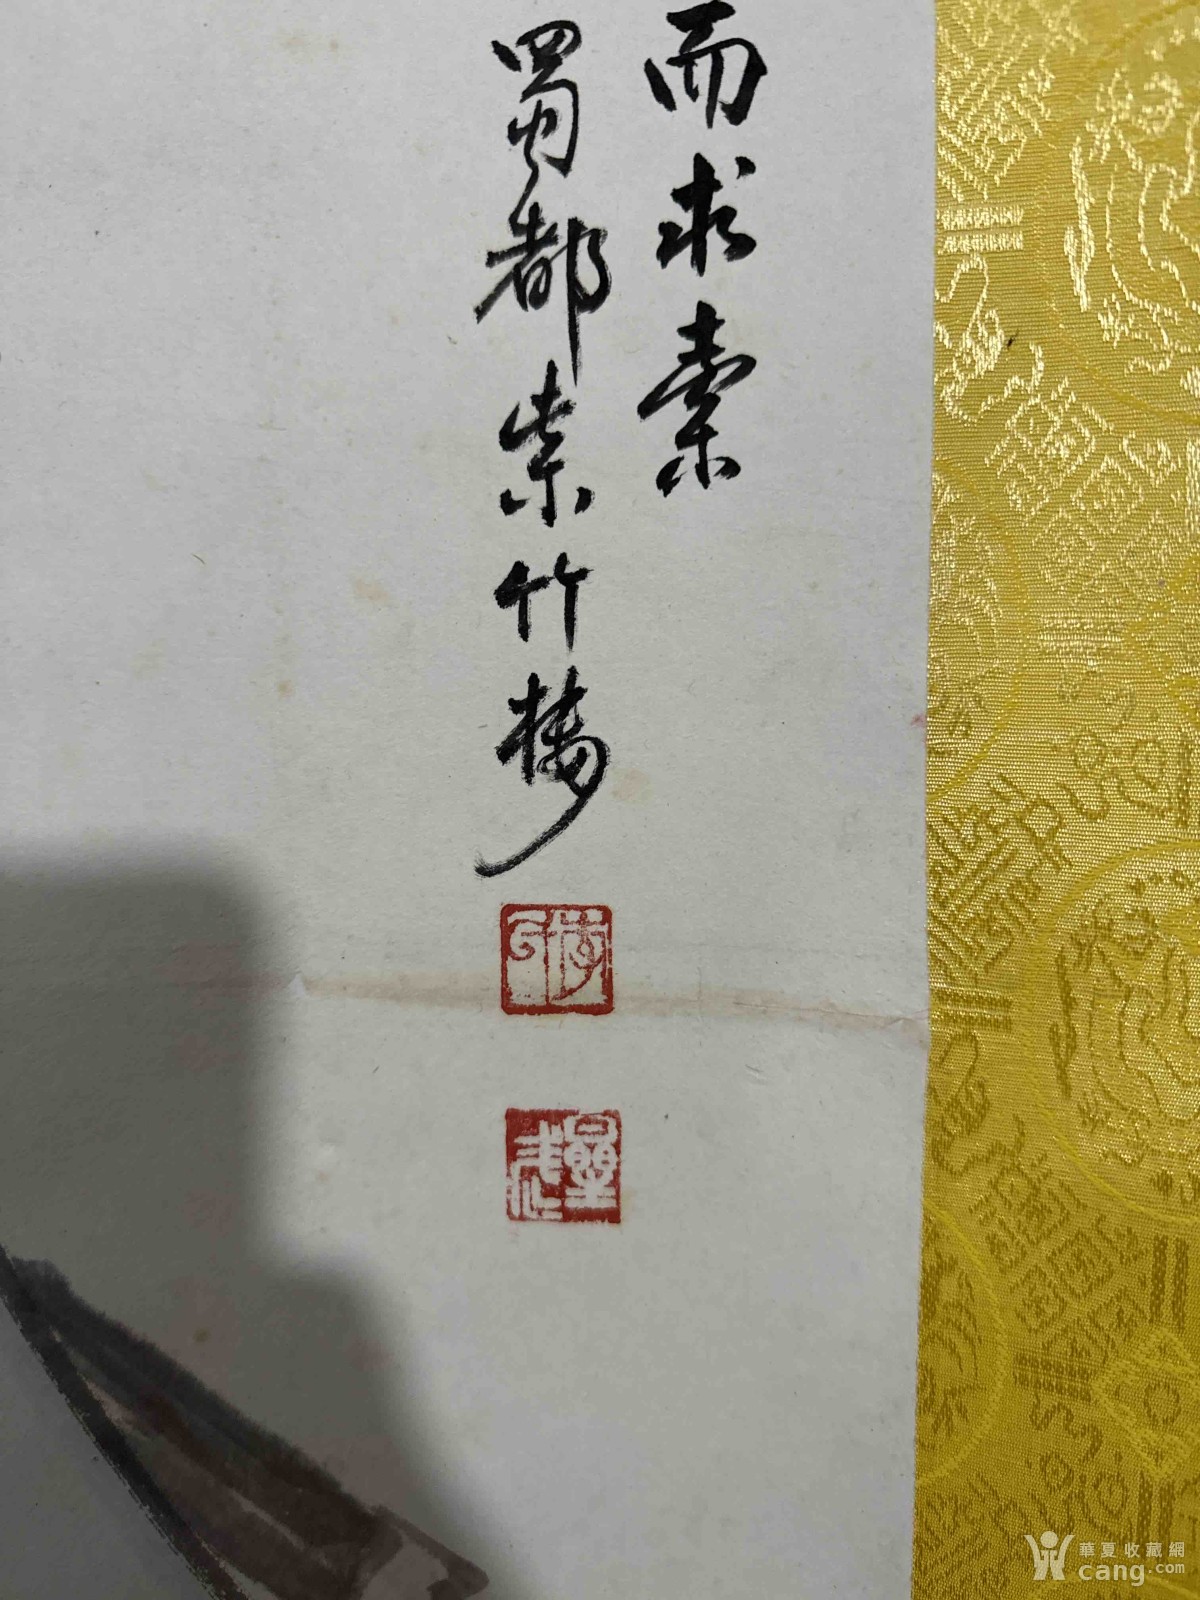 而求索
蜀都紫竹楼
華夏收藏網
cang.com